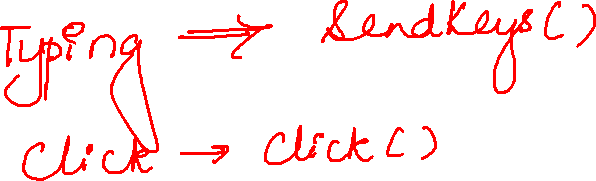 Typing ⇒ SendKeys()
Click → Click()